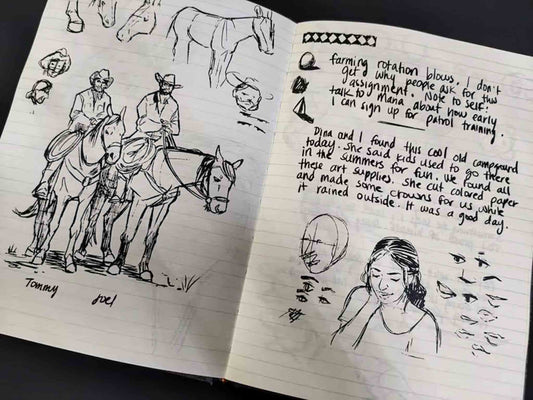 Tommy
Joel
farming rotation blows. I don't
get a why people ask for this
assignment. Note to self:
talk to Maria about how early
I can sign up for patrol training.
Dina and I found this cool old campground
today. She said kids used to go there
in the summers for fun. We found all
these art supplies. She cut colored paper
and made some crowns for us while
it rained outside. It was a good day.